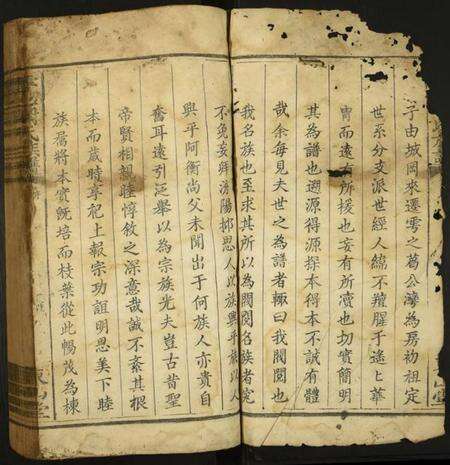 子由城岡來遷雩之葛公灣為房初祖定
世系分支派世經人緯不羶腥于遙遙華
冑而遠有所援也妄有所凟也切實簡明
其為譜也遡源得源探本得本不誠有體
哉余每見夫世之為譜者輒曰我閥閱也
我名族也至求其所以為閥閱名族者究
不免妄舜漁陽郁思人以族興乎族以人
興乎阿衡尚父未聞出于何族人亦貴自
奮耳遠引泛舉以為宗族光夫豈古昔聖
帝賢相親睦惇敘之深意哉誠不紊其根
本而歲時享祀上報宗功誼明恩美下睦
族屬將本實旣培而枝葉從此暢茂為棟